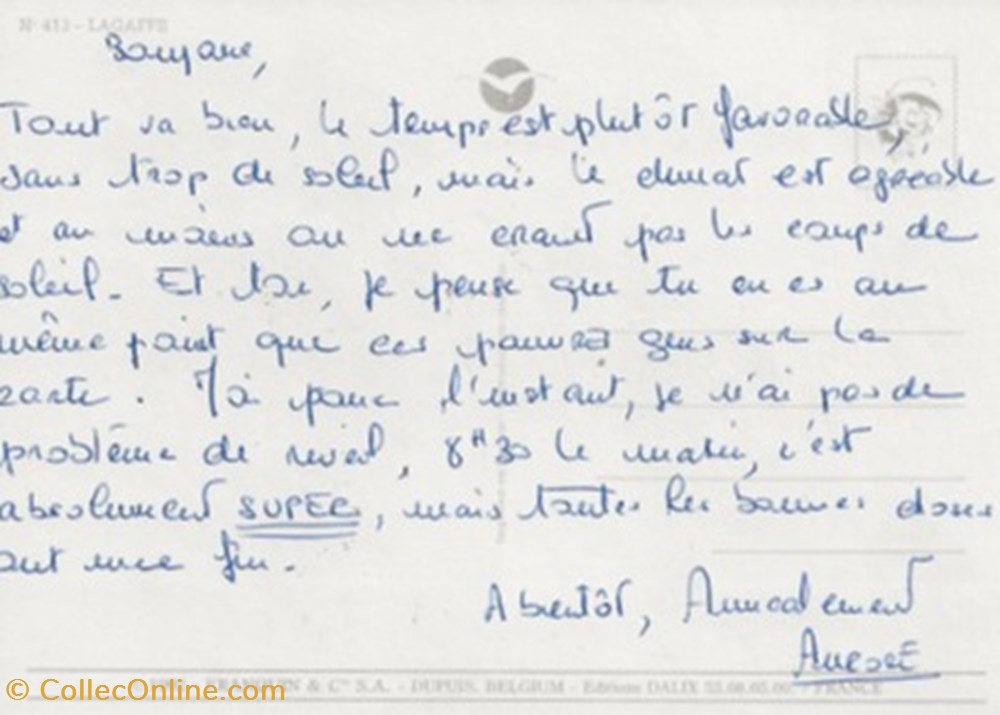 N° 413 - LAGAFFE
Bonjour,
Tout va bien, le temps est plutôt favorable,
sans trop de soleil, mais le climat est agréable
et au moins on ne craint pas les coups de
soleil. Et toi, je pense que tu en es au
même point que ces pauvres gens sur la
carte. Moi pour l'instant, je n'ai pas de
problème de réveil, 8H30 le matin, c'est
absolument SUPER, mais toutes les bonnes choses
ont une fin.
A bientôt, Amicalement
FRANQUIN & Cie S.A. - DUPUIS, BELGIUM - Editions DALIX - FRANCE
© CollecOnline.com